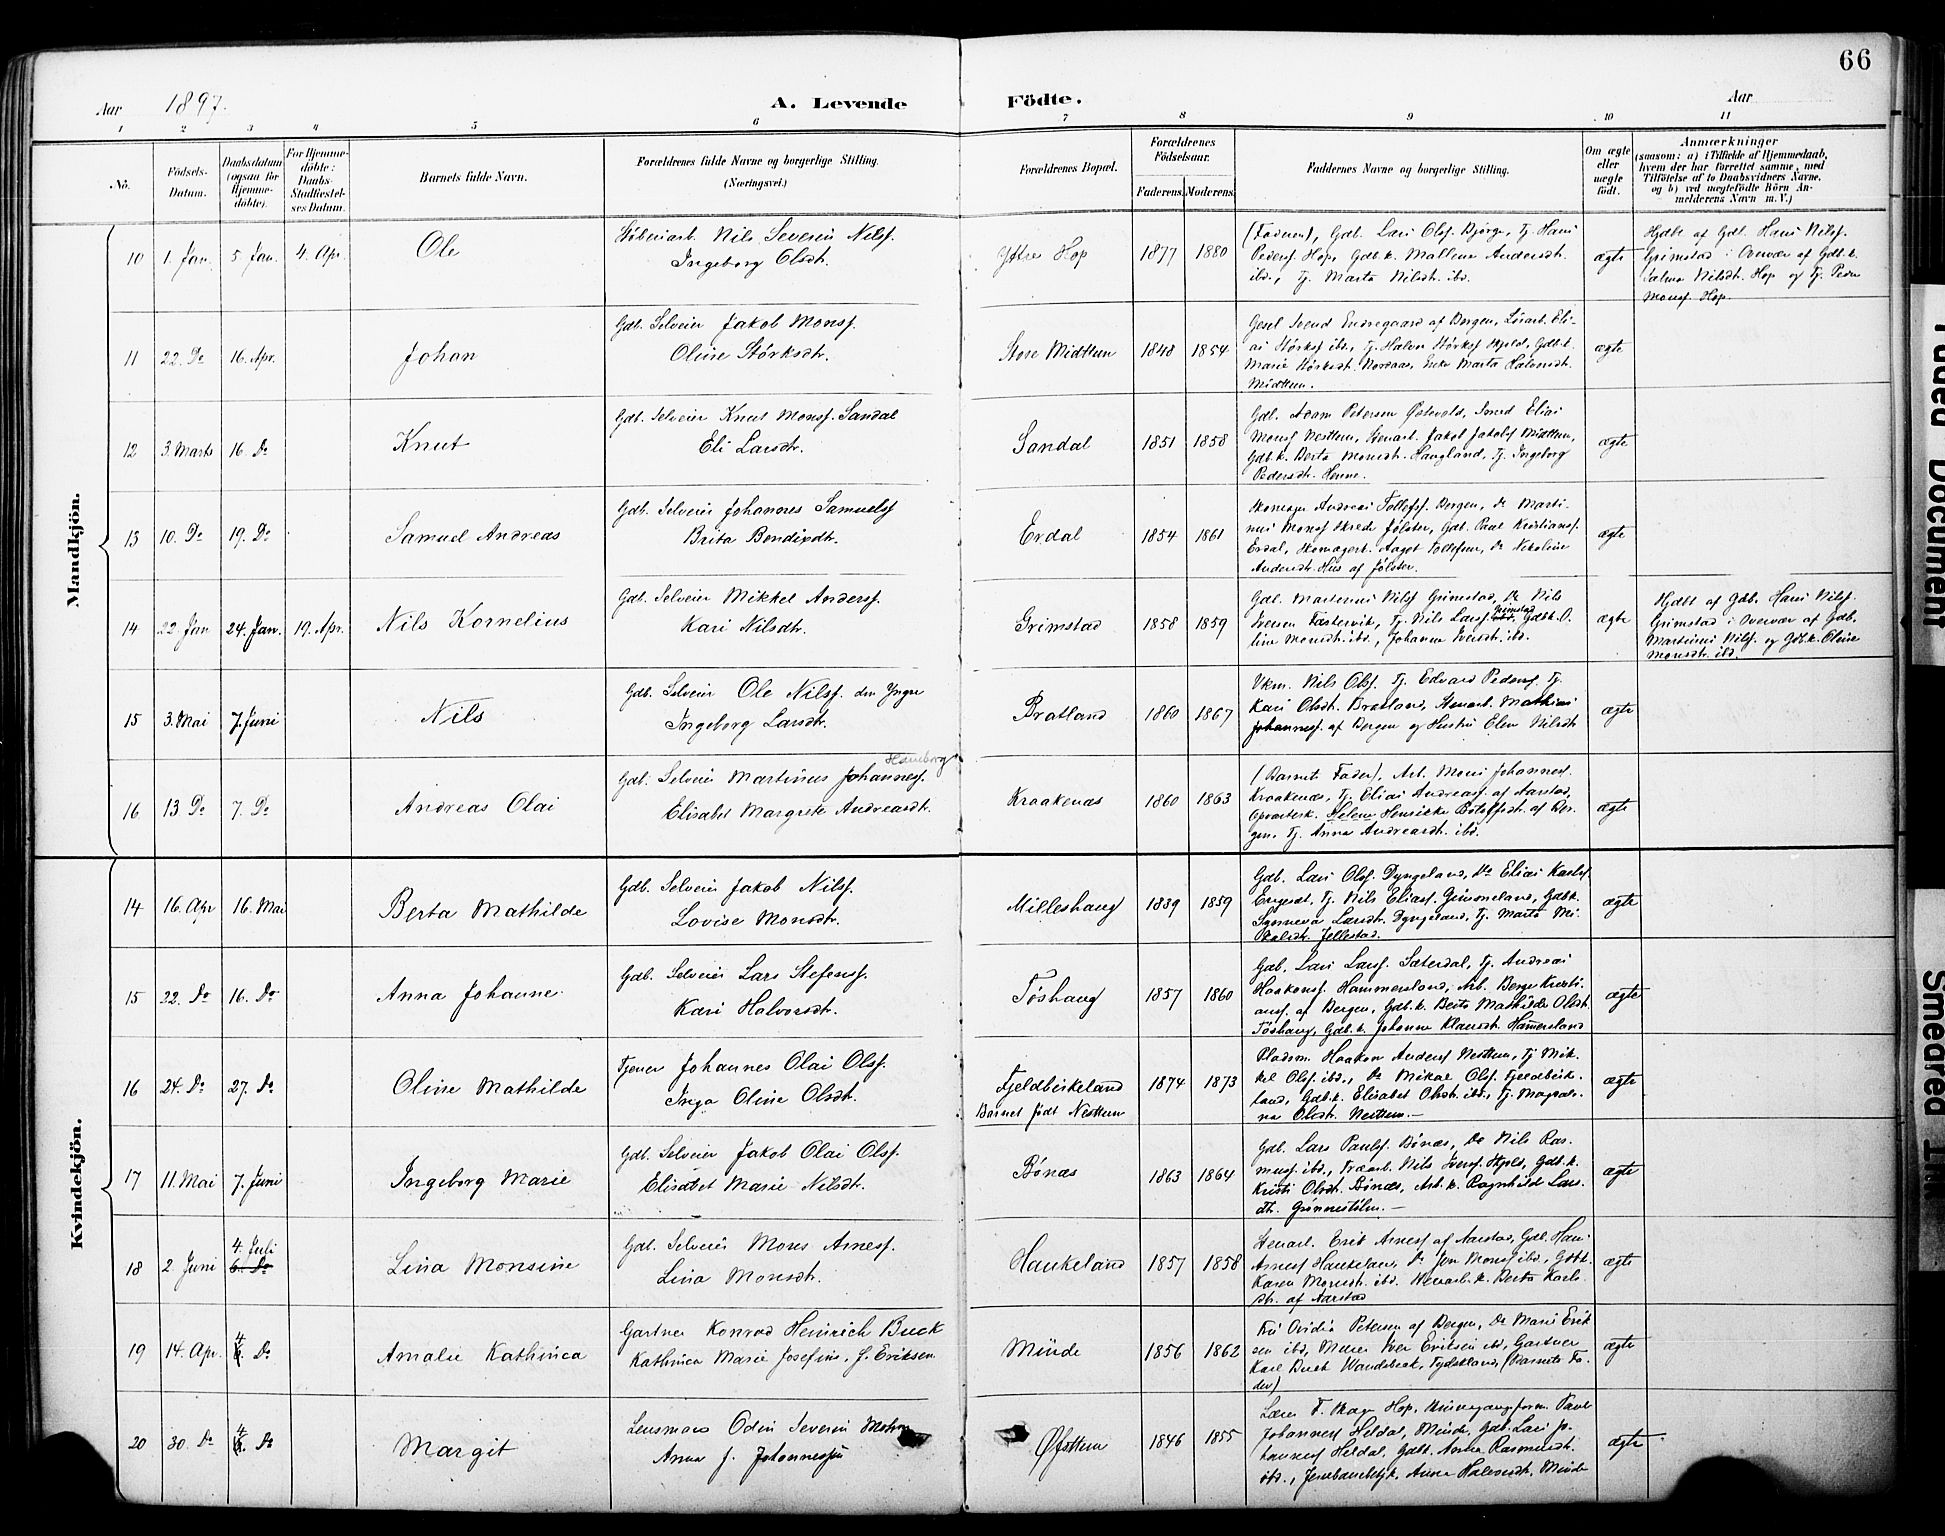 66
Aar 1897.
A. Levende Födte.
Aar
1 2 3 4 5 6 7 8 9 10 11
No.
Födsels-Datum.
Daabsdatum (ogsaa för Hjemmedöbte).
For Hjemmedöbte: Daabs-Stadfæstelses Datum.
Barnets fulde Navn.
Forældrenes fulde Navne og borgerlige Stilling. (Næringsvei.)
Forældrenes Bopæl.
Forældrenes Födselsaar.
Faderens. Moderens.
Faddernes Navne og borgerlige Stilling.
Om ægte eller uægte født.
Anmærkninger
(saasom: a) i Tilfælde af Hjemmedaab,
hvem der har forrettet samme, med
Tilföielse af to Daabsvidners Navne.
og b) ved uægtefödte Börn An-
melderens Navn m. V.)
Mandkjön.
10 1. Jan. 5. Jan. 4. Apr. Ole
Støberiarb. Nils Severin Nilsf.
Ingeborg Olsdt.
Ytre Hop 1877 1880
(Faderen), Gdb. Lars Olsf. Bjørge, Tj. Hans
Pedersf. Hop, Gdbk. Mallene Andersdt.
ibd., Tj. Marta Nilsdt. ibd.
ægte
Hjdbt af Gdb. Hans Nilsf.
Grimstad i Overvær af Gdb.k.
Nilsdt. Hop og Tj. Peder
Monsf. Hop.
11 22. Do 16. Apr. Johan
Gdb. Selveier Jakob Monsf.
Oline Størksdt.
Store Midttun 1848 1854
Gesel Svend Endregaard af Bergen, Eli-
as Størksf. ibd., Tj. Halvor Størksf. Hjeld, Gdb.k.
Marie Størksdt. Nordaas, Enke Marta Halvorsdt.
Midttun.
ægte
12 3. Marts 16. Do Knut
Gdb. Selveier Knut Monsf. Sandal
Eli Larsdt.
Sandal 1851 1858
Gdb. Adam Petersen Østvold, Smed Elias
Monsf. Nesttun, Stenarb. Jakob Jakobsf. Midttun,
Gdb.k. Berta Monsdt. Haugland, Tj. Ingeborg
Pedersdt.
ægte
13 10. Do 19. Do Samuel Andreas
Gdb. Selveier Johannes Samuelsf.
Brita Bendixdt.
Erdal 1854 1861
Skomager Andreas Tollefsf. Bergen, Do Marti-
nus Monsf. Skrede Jølster, Gdb. Peal Kristiansf.
Erdal, Skomagerk. Aagot Tollefsen, Do Nikoline
Andersdt. Hus af Jølster.
ægte
14 22. Jan 24. Jan. 19. Apr. Nils Kornelius
Gdb. Selveier Mikkel Andersf.
Kari Nilsdt.
Grimstad 1858 1859
Gdb. Martinus Nilsf. Grimstad, Do Nils
Iversen Fæstervik, Tj. Nils Larsf. Grimstad, Gdbk. O-
line Monsdt. ibd., Johanne Iversdt. ibd.
ægte
Hjdbt af Gdb. Hans Nilsf.
Grimstad i Overvær af Gdb.
Martinus Nilsf. og Gdb.k. Oline
Monsdt. ibd.
15 3. Mai 7. Juni Nils
Gdb. Selveier Ole Nilsf. den Yngre
Ingeborg Larsdt.
Bratland 1860 1867
Ukm. Nils Olsf. Tj. Edvard Pedersf. Tj.
Kari Olsdt. Bratland, Stenarb. Mathias
Johannesf. af Bergen og Hustru Elen Nilsdt
ægte
16 13 Do 7. Do Andreas Olai
Gdb. Selveier Martinus Johannesf. Hamborg
Elisabet Margrete Andreasdt.
Kraakenæs 1860 1863
(Barnets Fader), Arb. Mons Johannesf.
Kraakenæs, Tj. Elias Andreasf. af Aarstad,
Opvartersk. Helene Henrikke Botolfsdt. af Ber-
gen, Tj. Anna Andreasdt. ibd.
ægte
Kvindekjön.
14 16. Apr 16. Mai Berta Mathilde
Gdb. Selveier Jakob Nilsf.
Lovise Monsdt.
Milleshaug 1839 1859
Gdb. Lars Olsf. Dyngeland, Do Elias Karlsf.
Tj. Nils Eliasf. Grimseland, Gdb.k.
Synneva Larsdt. Dyngeland, Tj. Marta Mi-
kalsdt. Jellestad.
ægte
15 22. Do 16. Do Anna Johanne
Gdb. Selveier Lars Stefensf.
Kari Halvorsdt.
Tøshaug 1857 1860
Gdb. Lars Larsf. Sæterdal, Tj. Andreas
Haakonsf. Hammersland, Arb. Berge Kristi-
ansf. af Bergen, Gdb.k. Berta Mathilde Olsdt.
Tøshaug, Gdb.k. Johanne Klausdt. Hamersland
ægte
16 24. Do 27. Do Oline Mathilde
Tjener Johannes Olai Olsf.
Inga Oline Olsdt.
Fjeldbirkeland
Barnet født Nesttun
1874 1873
Pladsm. Haakon Andersf. Nesttun, Tj. Mik-
kel Olsf. ibd., Do Mikal Olsf. Fjeldbirke-
land, Gdb.k. Elisabet Olsdt. ibd., Tj. Magdale-
na Olsdt. Nesttun.—
ægte
17 11. Mai 7. Juni Ingeborg Marie
Gdb. Selveier Jakob Olai Olsf.
Elisabet Marie Nilsdt.
Bønæs 1863 1864
Gdb. Lars Paulsf. Bønæs, Do Nils Ras-
musf. ibd., Træarb. Nils Iversf. Hjeld, Gdb.k.
Kristi Olsdt. Bønæs, Arb.k. Ragnhilde Lars-
dt. Grønnestølen.—
ægte
18 2 Juni 4. Juli 6. Do Lina Monsine
Gdb. Selveier Mons Arnesf.
Lina Monsdt.
Haukeland 1857 1858
Stenarb. Erik Arnesf. af Aarstad, Gdb. Hans
Arnesf. Haukeland, Do Jon Monsf. ibd., Gdb.k.
Karen Monsdt. ibd. Stenarb.k. Berta Karls-
dt. af Aarstad
ægte
19 14. Apr. 4. Do Amalie Kathinca
Gartner Konrad Heinrich Buck
Kathinca Marie Josefine, f. Eriksen
Minde 1856 1862
Frk. Ovidia Petersen af Bergen, Do Marie Erik-
sen ibd., Murer Iver Eriksen ibd, Gartner
Karl Buck Wandsbeck, Tydskland, (Barnets Fa-
der)
ægte
20 30. Do 4. Do Margit
Lensmand Odin Severin Mohn
Anna J. Johannesen
Øfsttun 1846 1855
Lærer T. Skage Hop, Paul
Johannesf. Heldal, Minde, Gdb. Lars Jo-
hannesf. Heldal, Gdb.k. Anna Rasmusdt.
ibd., Anna Halvorsdt. Minde
ægte
Faded Document
Smeared Ink